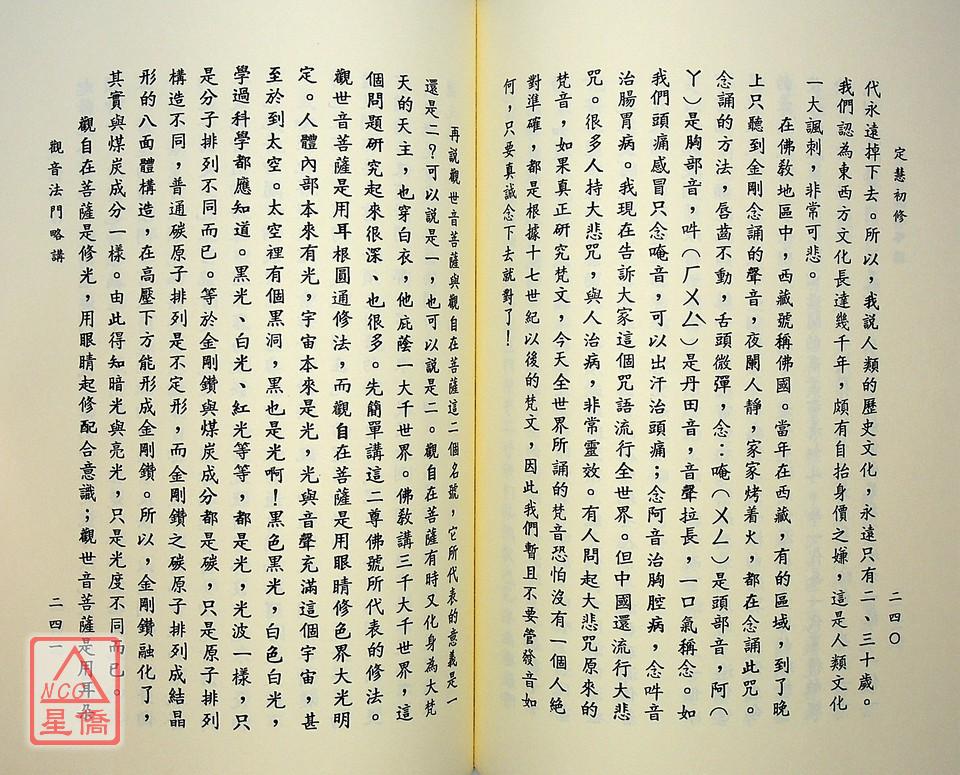 定慧初修
二四〇
代永遠掉下去。所以，我説人類的歷史文化，永遠只有二、三十歲。
我們認為東西方文化長達幾千年，頗有自抬身價之嫌，這是人類文化
一大諷刺，非常可悲。
在佛教地區中，西藏號稱佛國。當年在西藏，有的區域，到了晚
上只聽到金剛念誦的聲音，夜闌人靜，家家烤着火，都在念誦此咒。
念誦的方法，唇齒不動，舌頭微彈，念：唵（ㄨㄥ）是頭部音，阿（
ㄚ）是胸部音，吽（ㄏㄨㄥˋ）是丹田音，音聲拉長，一口氣稱念。如
我們頭痛感冒只念唵音，可以出汗治頭痛；念阿音治胸腔病，念吽音
治腸胃病。我現在告訴大家這個咒語流行全世界。但中國還流行大悲
咒。很多人持大悲咒，與人治病，非常靈效。有人問起大悲咒原來的
梵音，如果真正研究梵文，今天全世界所誦的梵音恐怕沒有一個人絶
對準確，都是根據十七世紀以後的梵文，因此我們暫且不要管發音如
何，只要真誠念下去就對了！
再説觀世音菩薩與觀自在菩薩這二個名號，它所代表的意義是一
還是二？可以説是一，也可以説是二。觀自在菩薩有時又化身為大梵
天的天主，也穿白衣，他庇蔭一大千世界。佛教講三千大千世界，這
個問題研究起來很深、也很多。先簡單講這二尊佛號所代表的修法。
觀世音菩薩是用耳根圓通修法，而觀自在菩薩是用眼睛修色界大光明
定。人體內部本來有光，宇宙本來是光，光與音聲充滿這個宇宙，甚
至於到太空。太空裡有個黑洞，黑也是光啊！黑色黑光，白色白光，
學過科學都應知道。黑光、白光、紅光等等，都是光，光波一樣，只
是分子排列不同而已。等於金剛鑽與煤炭成分都是碳，只是原子排列
構造不同，普通碳原子排列是不定形，而金剛鑽之碳原子排列成結晶
形的八面體構造，在高壓下方能形成金剛鑽。所以，金剛鑽融化了，
其實與煤炭成分一樣。由此得知暗光與亮光，只是光度不同而已。
觀自在菩薩是修光，用眼睛起修配合意識；觀世音菩薩是用耳朵
觀音法門略講
二四一
NCC
星僑